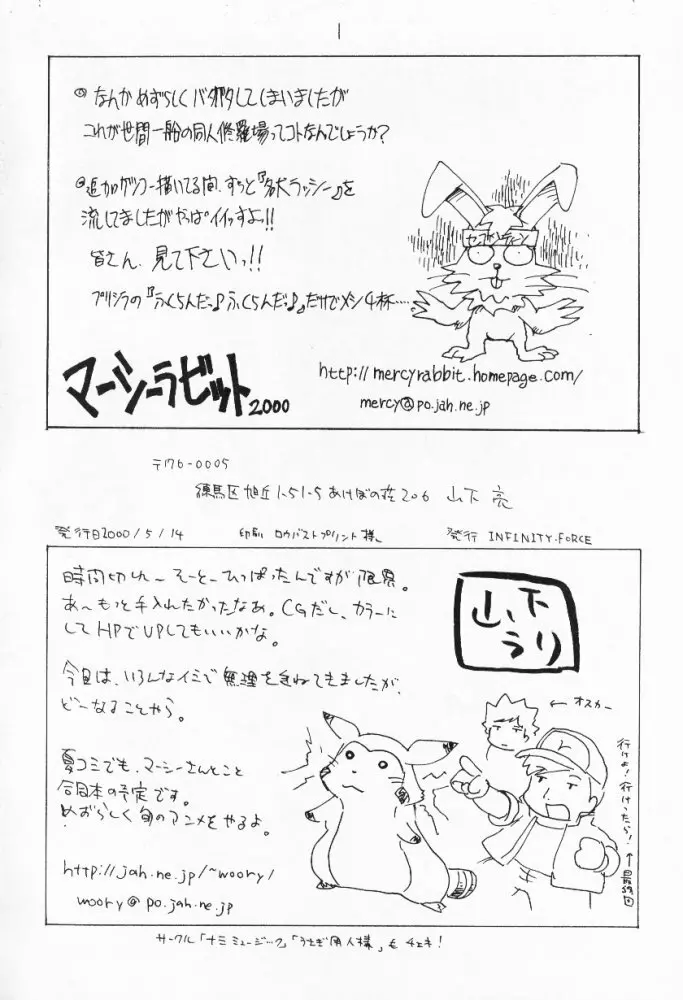 なんかめずらしくバタバタしてしまいましたが
これが世間一般の同人修羅場ってコトなんでしょうか?
追加ゲンコー描いてる間、ずっと『名犬ラッシー』を
流してましたがやっぱイイっすよっ!!
皆さん、見て下さいっ!!
プリシラの『ふくらんだっ♪ふくらんだっ♪』だけでメシ4杯……
マーシーラビット2000
http://mercyrabbit.homepage.com/
mercy@po.jah.ne.jp
〒176-0005
練馬区旭丘1-51-5 あけぼの荘206 山下 亮
発行日2000/5/14 印刷 ロウバストプリント様 発行 INFINITY-FORCE
時間切れ〜 そーとーひっぱったんですが限界。
あ〜もっと手入れたかったなあ。CGだし、カラーに
してHPでUPしてもいいかな。
今回は、いろんなイミで無理をきねてきましたが、
どーなることやら。
夏コミでも、マーシーさんとこと
合同本の予定です。
めずらしく旬のアニメをやるよ。
http://jah.ne.jp/~woory/
woory@po.jah.ne.jp
山下
うり
← オスカー
行けよ!行けったら!
↑最終回
サークル「ナミミュージック」「うさぎ同人様」もチェキ!